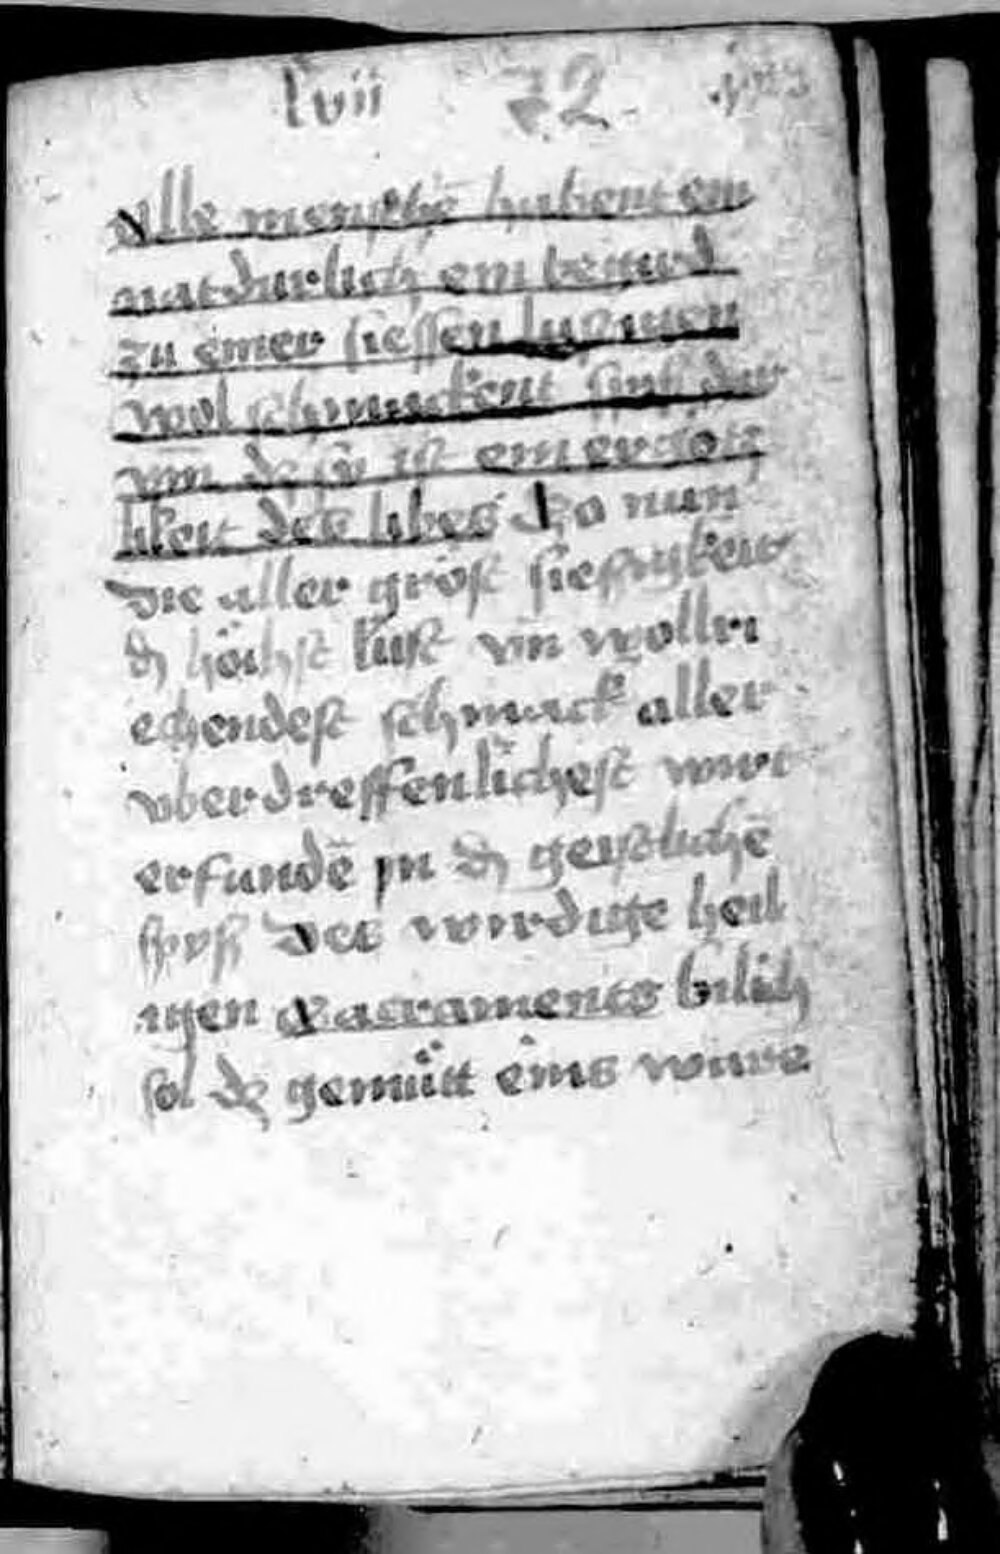 lvii 72
Alle mensche habent ein
natdurlich ein begird
zu einer siessen
wol schmackent spyß dar
vm̄ dz sy ist ein ergötz
likeit des libes So nun
die aller gröst siessigkeit
dz höchst lust vn̄ wollri
echendest schmack aller
vberdreffenlichest wirt
erfundē jn dz geystlichē
spyß des wirdige heil
igen Sacraments bilich
sol dz gemiüt eins